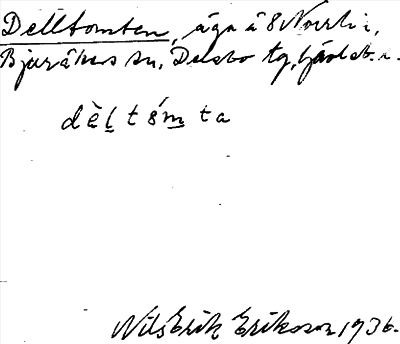 Delltomten, äga å 8 Norrbi,
Bjuråkers sn, Delsbo tg, Gävleb. l.
dèltómta
Nils Erik Eriksson 1936.